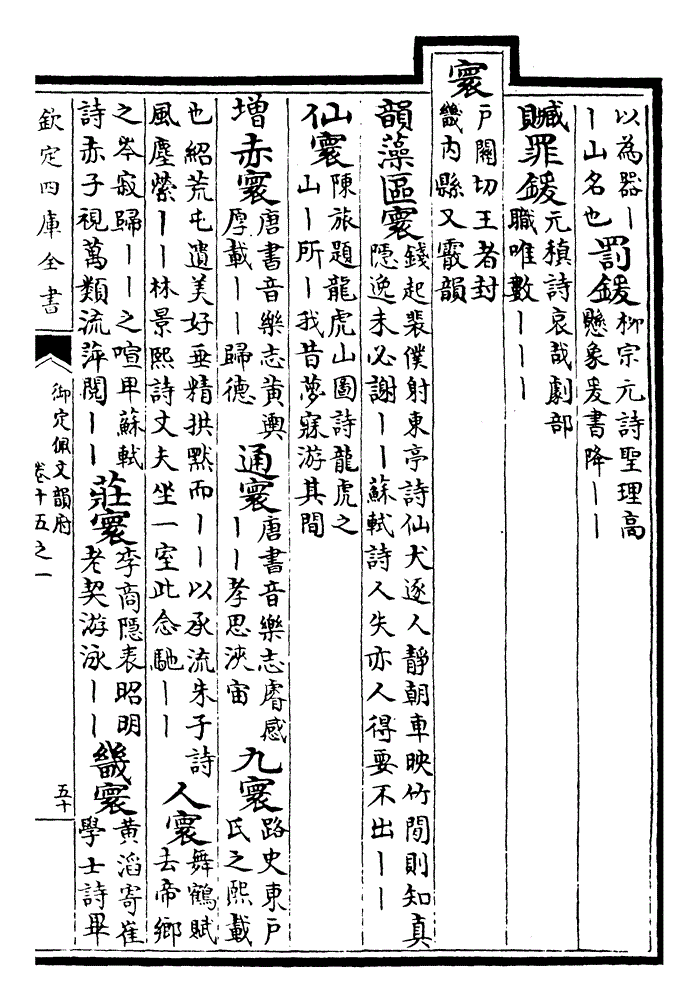 以為器丨
丨山名也
罰鍰
柳宗元詩聖理高
懸象爰書降丨丨
贓罪鍰
元稹詩哀哉劇部
職唯數丨丨丨
寰
戶關切王者封
畿內縣又霰韻
韻藻
區寰
錢起裴僕射東亭詩仙犬逐人靜朝車映竹間則知真
隱逸未必謝丨丨蘇軾詩人失亦人得要不出丨丨
仙寰
陳旅題龍虎山圖詩龍虎之
山丨所丨我昔夢寐游其間
增
赤寰
唐書音樂志黄輿
厚載丨丨歸德
通寰
唐書音樂志睿感
丨丨孝思浹宙
九寰
路史東戶
氏之熙載
也紹荒屯遺美好垂精拱默而丨丨以承流朱子詩
風塵縈丨丨林景熙詩丈夫坐一室此念馳丨丨
人寰
舞鶴賦
去帝鄉
之岑寂歸丨丨之喧卑蘇軾
詩赤子視萬類流萍閱丨丨
莊寰
李商隱表昭明
老契游泳丨丨
畿寰
黄滔寄崔
學士詩畢
欽定四庫全書
御定佩文韻府
卷十五之一
五十